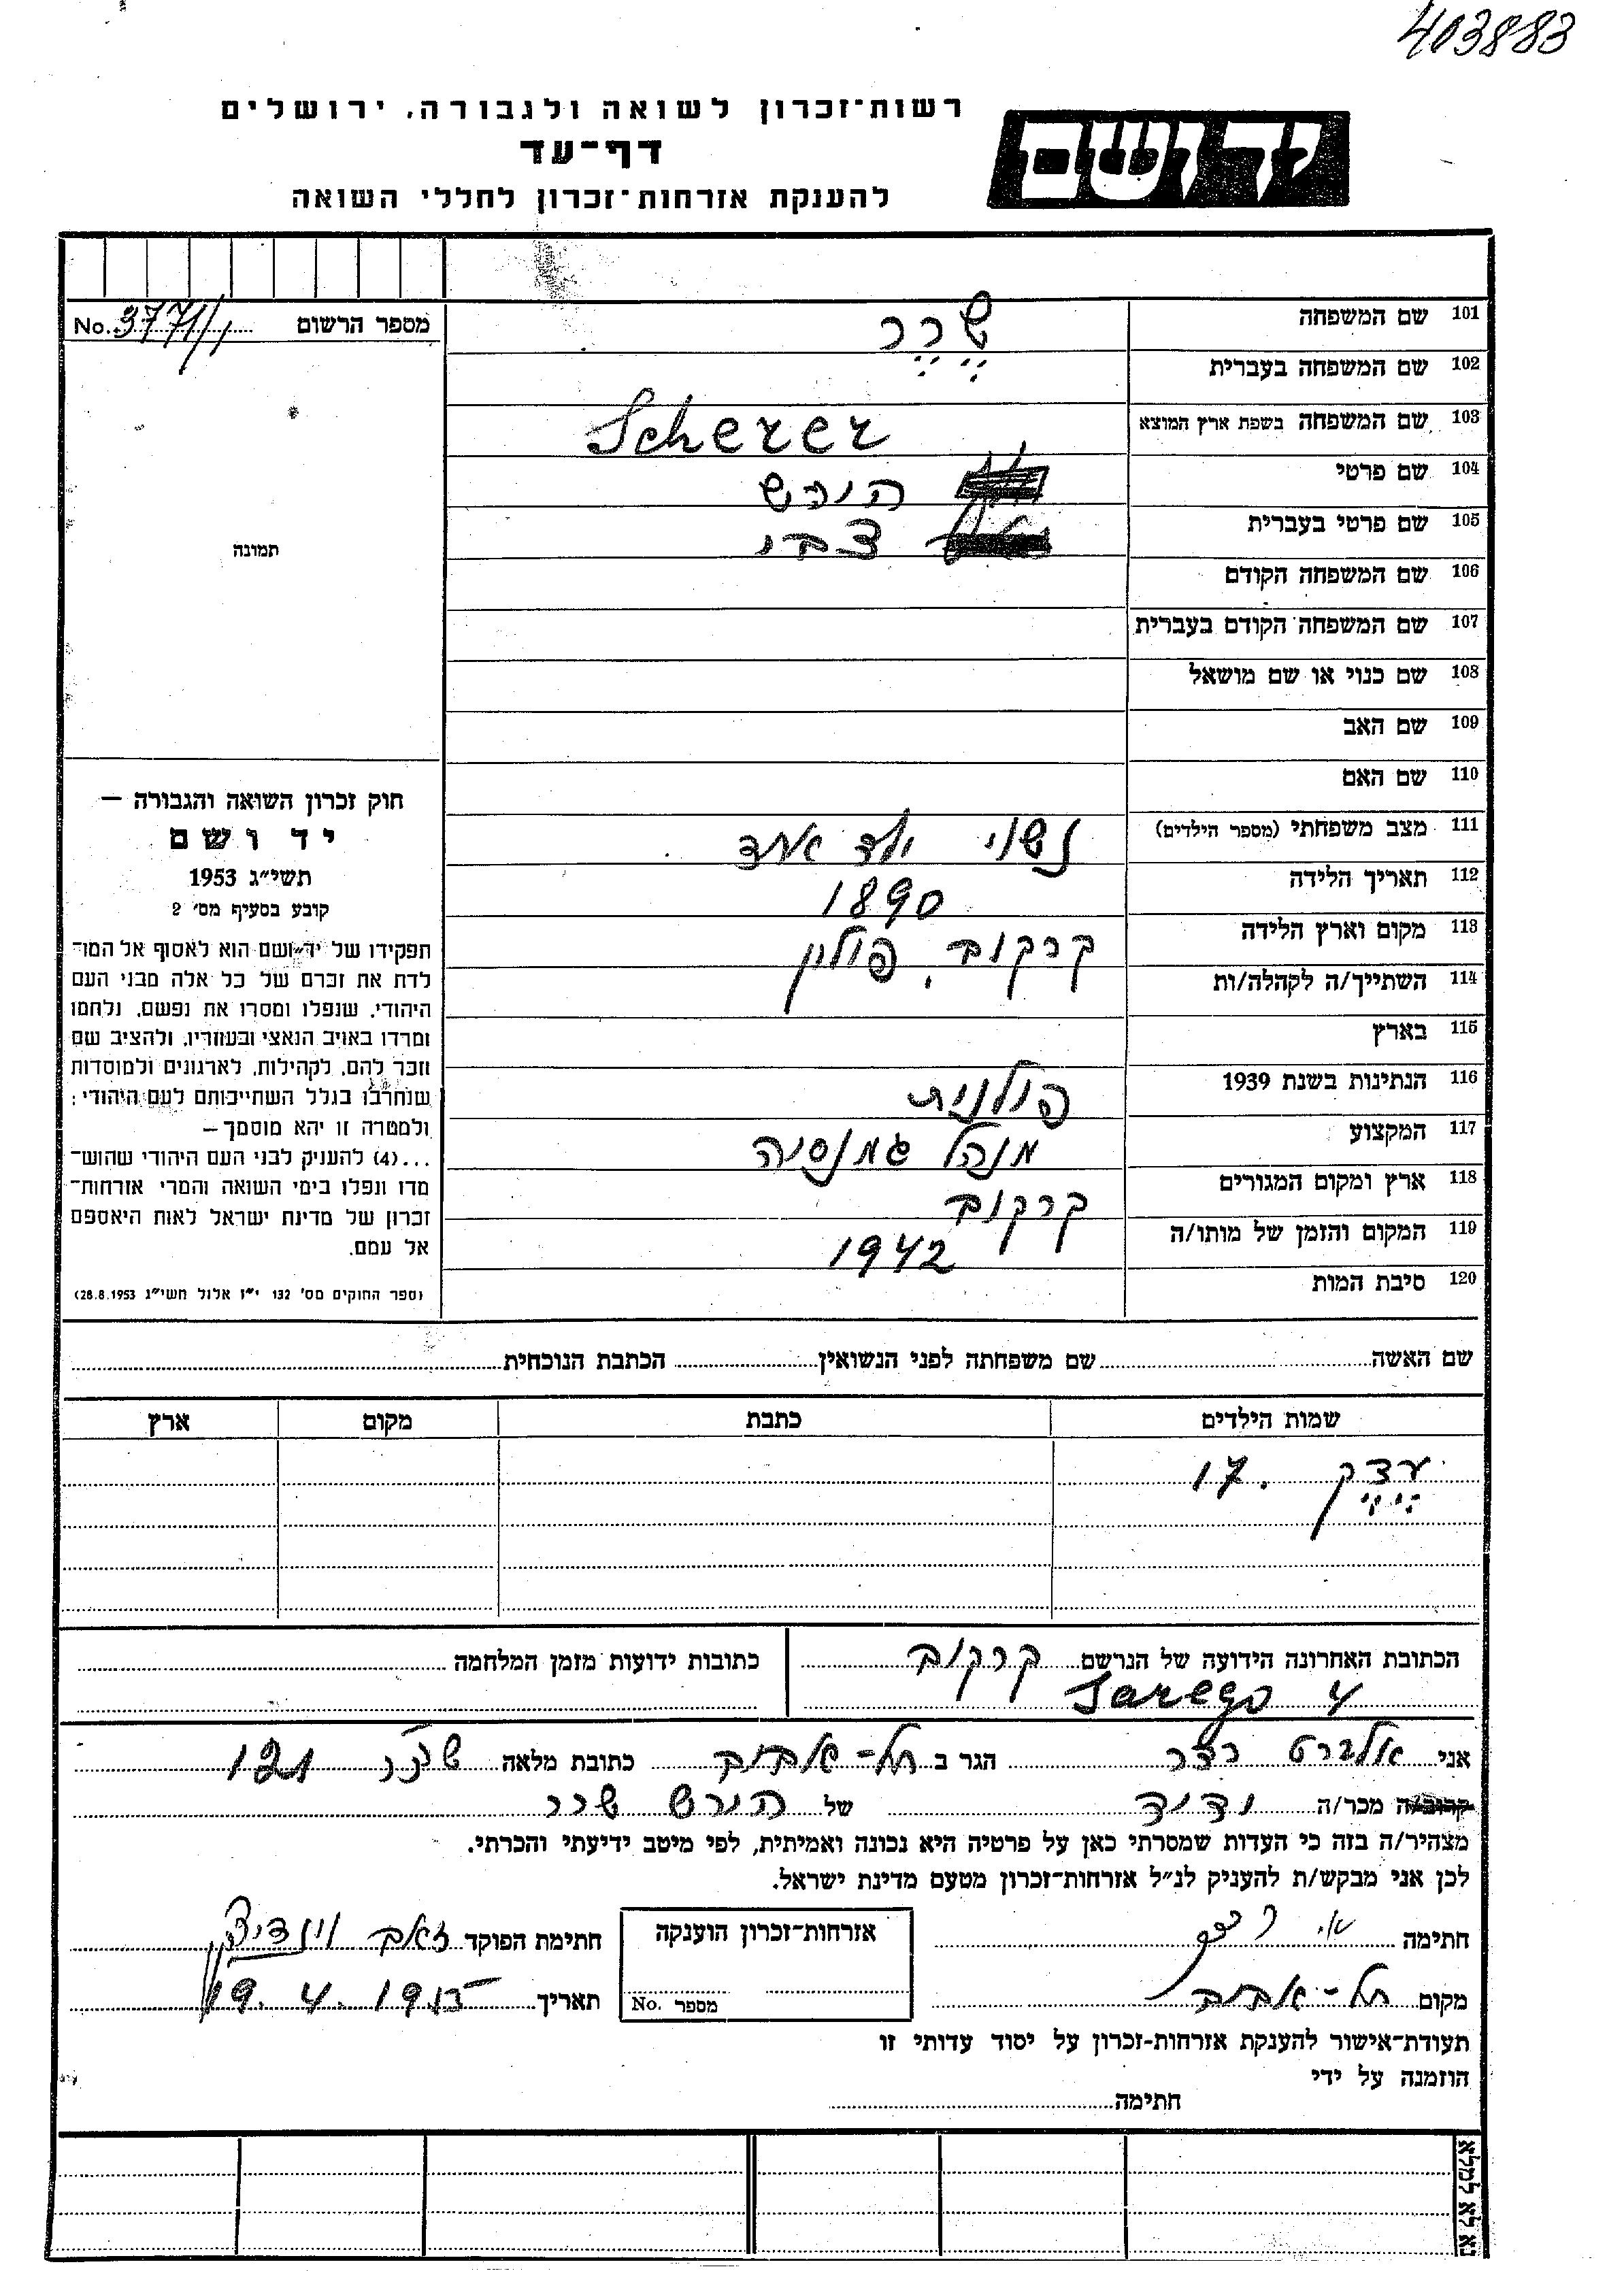 403883
רשות-זכרון לשואה ולגבורה, ירושלים
ידושם
דף-עד
להענקת אזרחות-זכרון לחללי השואה
מספר הרשום No. 3771/1
101 שם המשפחה שֶׁרֶר
102 שם המשפחה בעברית
103 שם המשפחה בשפת ארץ המוצא Scherer
104 שם פרטי הירש
105 שם פרטי בעברית צבי
106 שם המשפחה הקודם
107 שם המשפחה הקודם בעברית
108 שם כנוי או שם מושאל
109 שם האב
110 שם האם
111 מצב משפחתי (מספר הילדים) נשוי ילד אחד
112 תאריך הלידה 1890
113 מקום וארץ הלידה קרקוב, פולין
114 השתייך/ה לקהלה/ות
115 בארץ
116 הנתינות בשנת 1939 פולנית
117 המקצוע מנהל גמנסיה
118 ארץ ומקום המגורים קרקוב
119 המקום והזמן של מותו/ה 1942
120 סיבת המות
תמונה
חוק זכרון השואה והגבורה —
יד ושם
תשי״ג 1953
קובע בסעיף מס׳ 2
תפקידו של יד-ושם הוא לאסוף אל המו-
לדת את זכרם של כל אלה מבני העם
היהודי, שנפלו ומסרו את נפשם, נלחמו
ומרדו באויב הנאצי ובעוזריו, ולהציב שם
וזכר להם, לקהילות, לארגונים ולמוסדות
שנחרבו בגלל השתייכותם לעם היהודי;
ולמטרה זו יהא מוסמך—
...(4) להעניק לבני העם היהודי שהוש-
מדו ונפלו בימי השואה והמרי אזרחות-
זכרון של מדינת ישראל לאות היאספם
אל עמם.
(ספר החוקים מס׳ 132 י״ז אלול תשי״ג 28.8.1953)
שם האשה שם משפחתה לפני הנשואין הכתבת הנוכחית
שמות הילדים כתבת מקום ארץ
17
הכתובת האחרונה הידועה של הנרשם קרקוב
Sarego 4
כתובות ידועות מזמן המלחמה
אני אלברט רצר הגר ב תל-אביב כתובת מלאה 121
קרוב/ה מכר/ה ידיד של הירש שרר
מצהיר/ה בזה כי העדות שמסרתי כאן על פרטיה היא נכונה ואמיתית, לפי מיטב ידיעתי והכרתי.
לכן אני מבקש/ת להעניק לנ״ל אזרחות-זכרון מטעם מדינת ישראל.
חתימה
אזרחות-זכרון הוענקה
חתימת הפוקד זאב
מקום תל-אביב
מספר No.
תאריך 19.4.1955
תעודת-אישור להענקת אזרחות-זכרון על יסוד עדותי זו
הוזמנה על ידי
חתימה
נא לא למלא